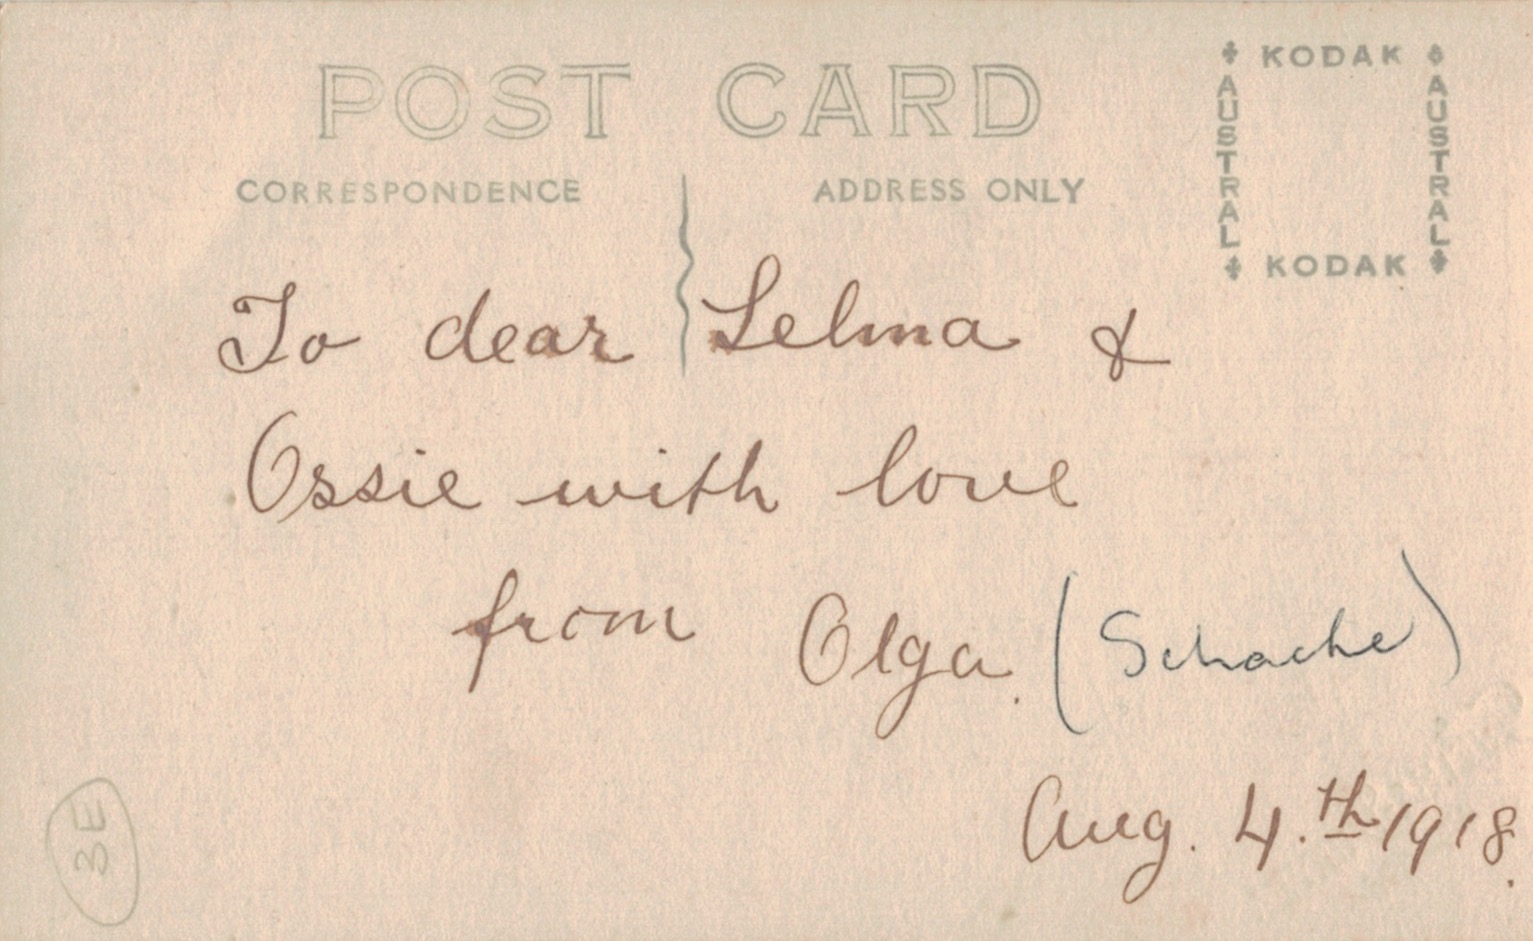 POST CARD
CORRESPONDENCE
ADDRESS ONLY
KODAK
AUSTRAL
AUSTRAL
KODAK
To dear Selma &
Ossie with love
from Olga. (Schache)
Aug. 4.th 1918.
3E